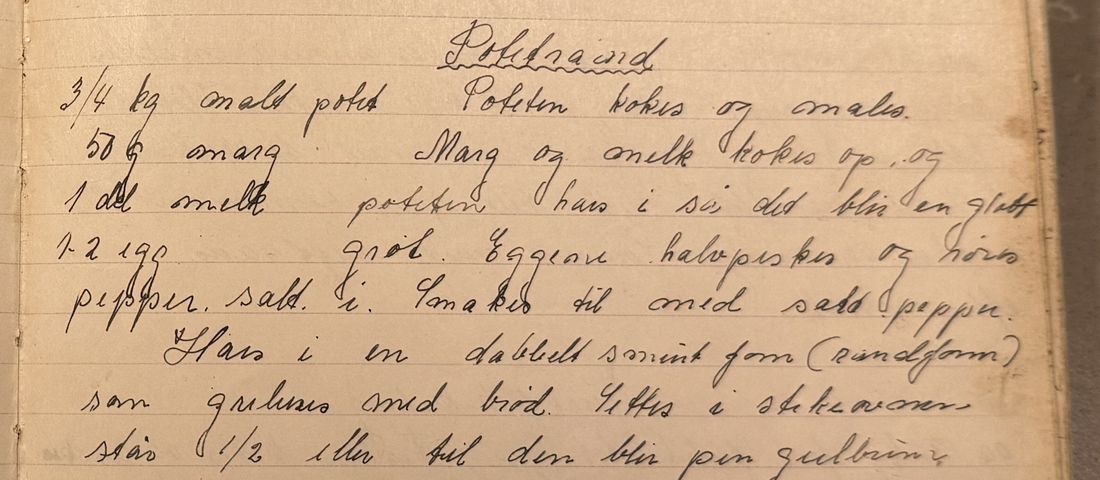 Potetrand
3/4 kg malt potet Poteten kokes og males.
50 g marg Marg og melk kokes op, og
1 del melk poteten haes i så det blir en glatt
1-2 egg grøt. Eggene halvpiskes og røres
pepper. salt. i. Smakes til med salt. pepper.
Haes i en dobbelt smurt form (randform)
som grubues med brød. Settes i stekeovnen
står 1/2 eller til den blir pen gulbrun.